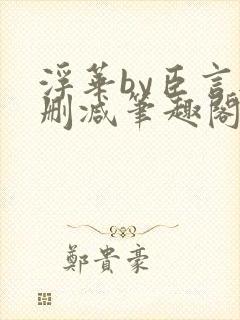 浮华by臣言
删减笔趣阁
鄭貴豪